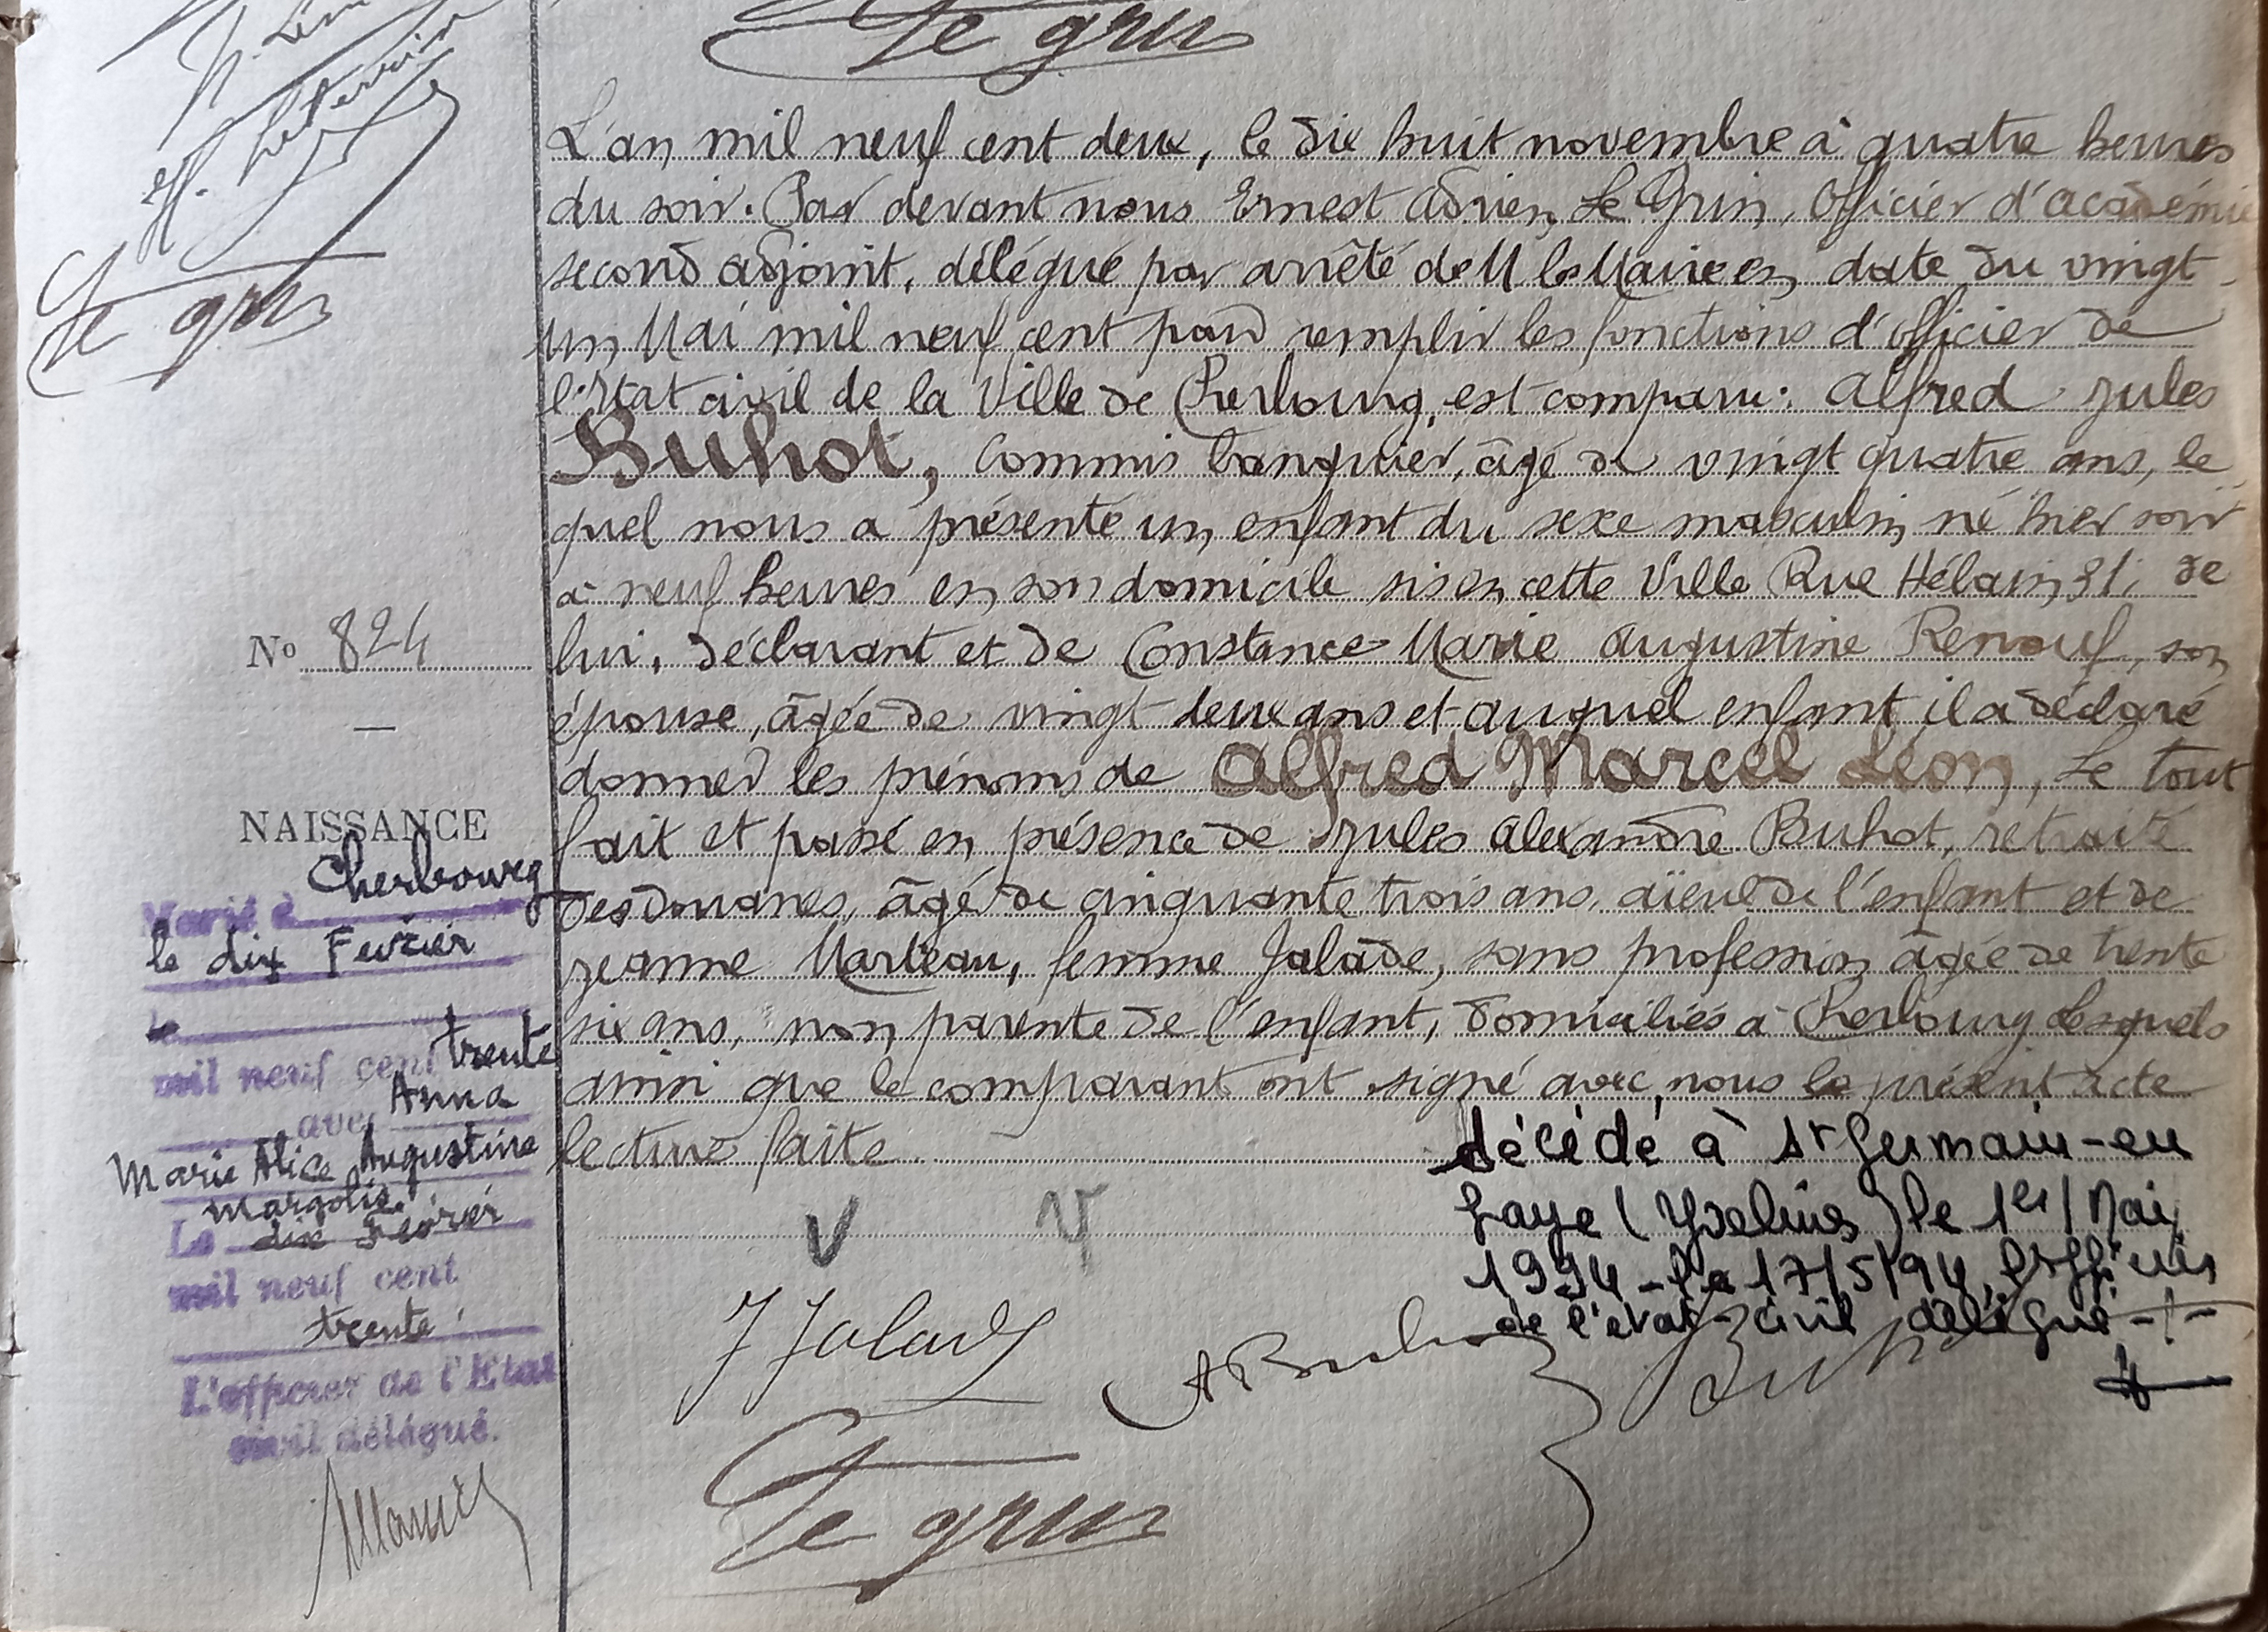 Le grin
H. Le
Le grin
L'an mil neuf cent deux, le dix huit novembre à quatre heures
du soir. Par devant nous Ernest Adrien Le Grin, Officier d'académie
second adjoint, délégué par arrêté de M le Maire en date du vingt
un Mai mil neuf cent pour remplir les fonctions d'officier de
l'Etat civil de la Ville de Cherbourg, est comparu: Alfred Jules
Buhot, Commis banquier, âgé de vingt quatre ans, le
quel nous a présenté un enfant du sexe masculin, né hier soir
à neuf heures en son domicile sis en cette Ville Rue Hélain, 31, de
lui, déclarant et de Constance Marie Augustine Renouf, son
épouse, âgée de vingt deux ans et auquel enfant il a déclaré
donner les prénoms de Alfred Marcel Léon, Le tout
fait et passé en présence de Jules Alexandre Buhot, retraité
des Douanes, âgé de cinquante trois ans, aïeul de l'enfant et de
Jeanne Marteau, femme Jalade, sans profession âgée de trente
six ans, non parente de l'enfant, domiciliés à Cherbourg Lesquels
ainsi que le comparant ont signé avec nous le présent acte
lecture faite.
No 824
NAISSANCE
Marié à Cherbourg
le dix Fevrier
le
mil neuf cent trente
avec Anna
Marie Alice Augustine
Margolie.
Le dix Fevrier
mil neuf cent
trente.
L'officier de l'Etat
civil délégué.
décédé à St Germain-en
Laye (Yvelines) le 1er Mai
1994 - Le 17/5/94, L'officier
de l'état-civil délégué
V V
J Jalade
A Buhot
Buhot
Le grin